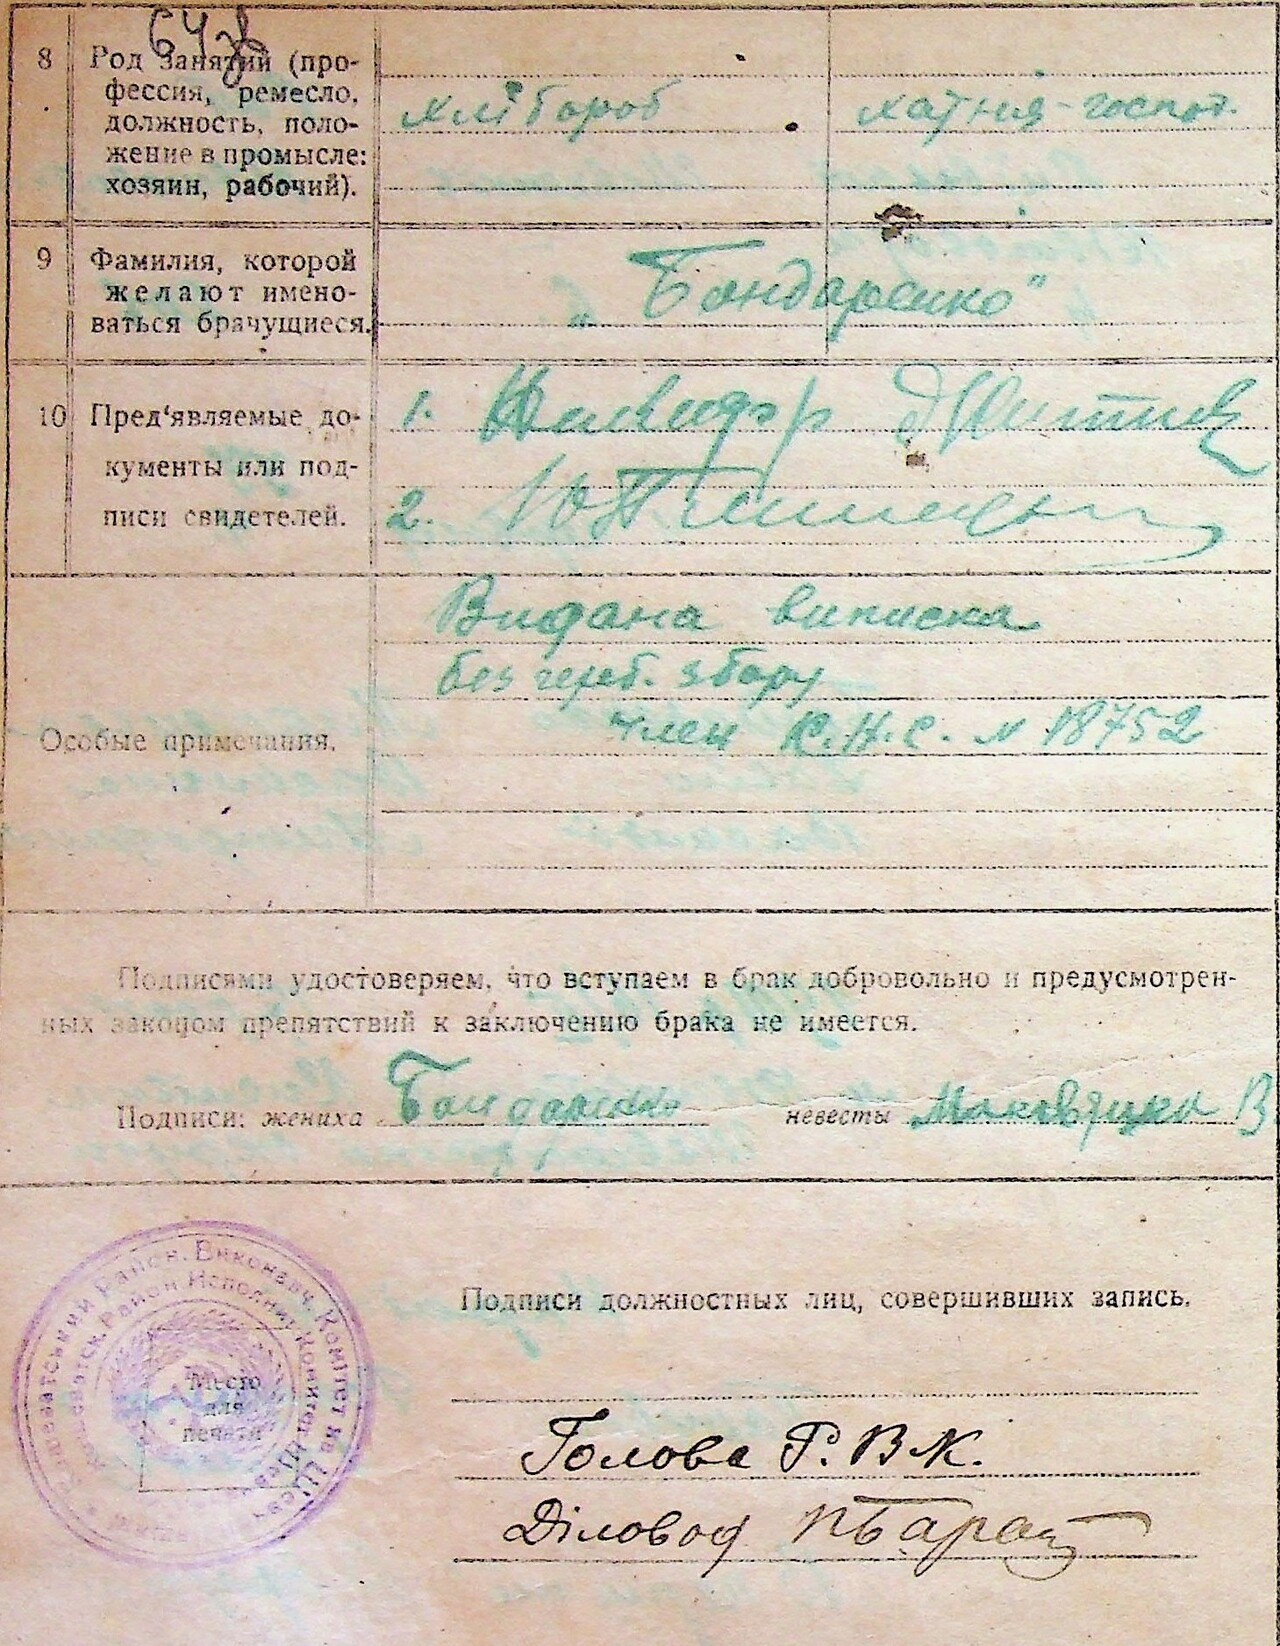 64 зв
8 Род занятий (про-
фессия, ремесло,
должность, поло-
жение в промысле:
хозяин, рабочий).
хлібороб
хатня-господ.
9 Фамилия, которой
желают имено-
ваться брачущиеся.
„Бондаренко"
10 Пред'являемые до-
кументы или под-
писи свидетелей.
1.
2.
Особые примечания.
Видана виписка
без герб. збору
член К.Н.С. № 18752
Подписями удостоверяем, что вступаем в брак добровольно и предусмотрен-
ных законом препятствий к заключению брака не имеется.
Подписи: жениха Бондаренко невесты В
Район. Виконавч. Комітет на Шевч
Район Исполнит. Комитет Шев
Место
для
печати
Подписи должностных лиц, совершивших запись.
Голова Р.В.К.
Діловод